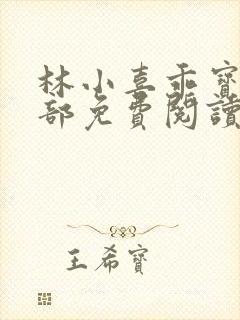 林小喜乖寶
部免費閱讀
王希寶